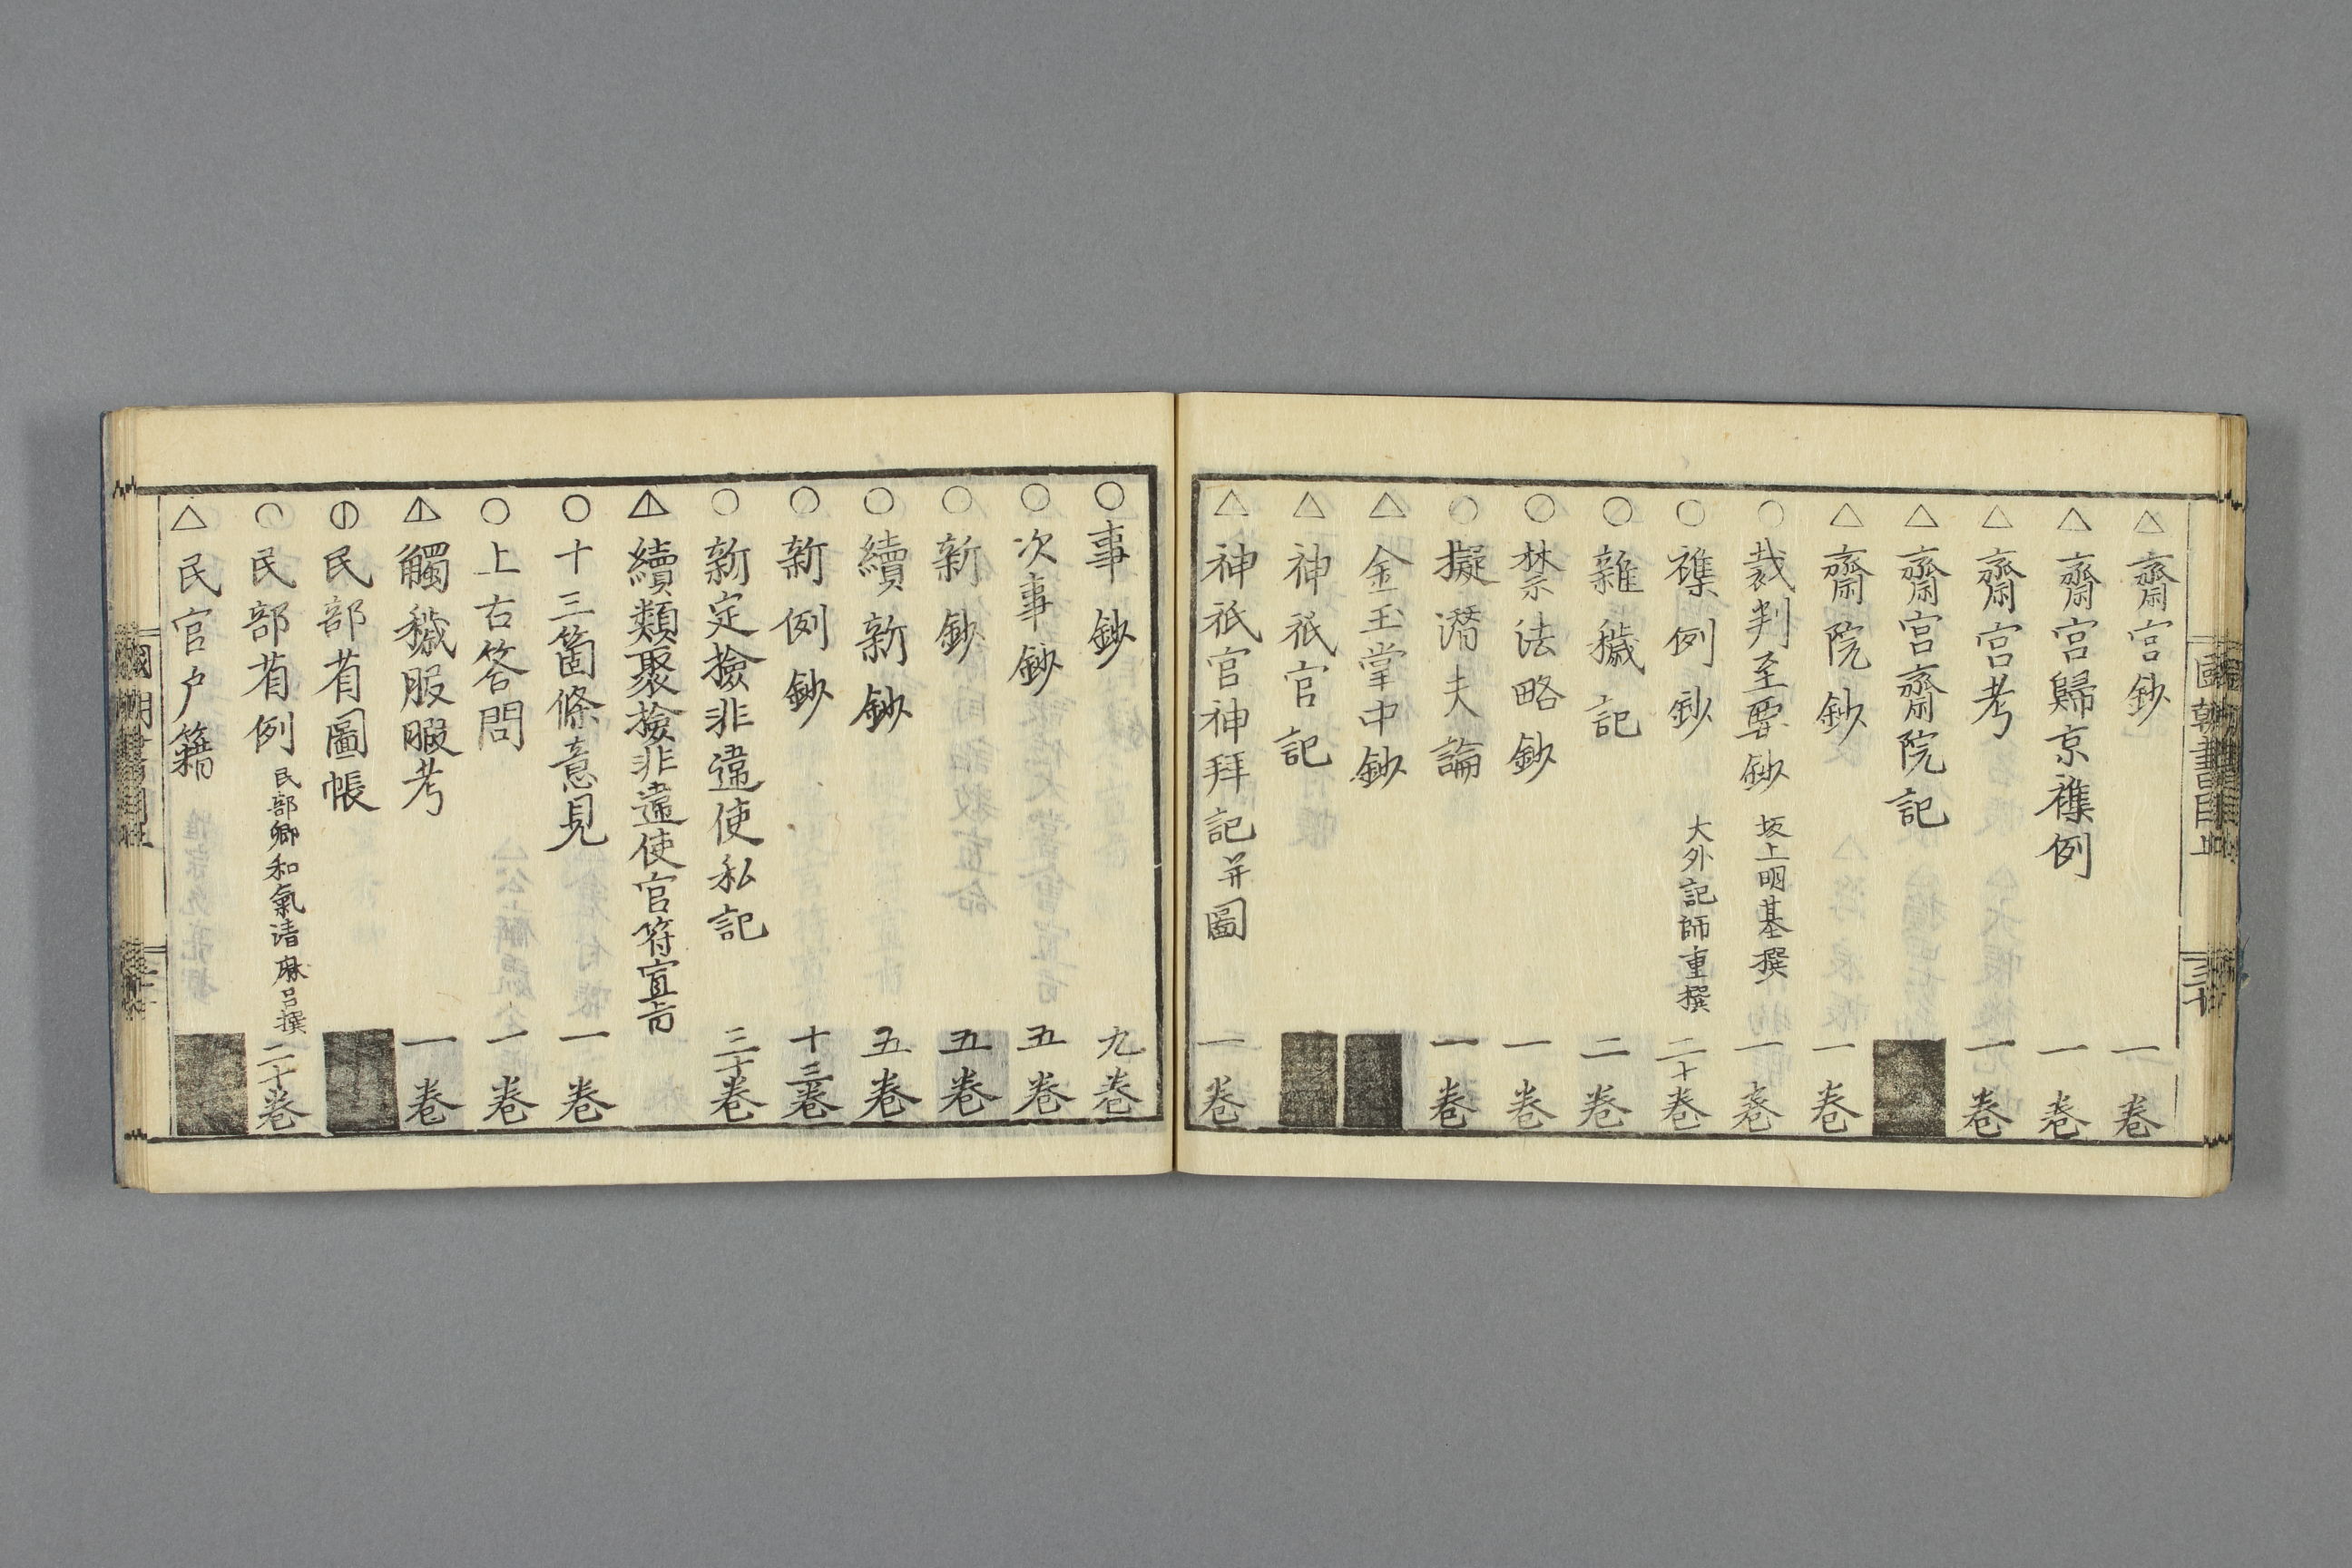 △齋宮鈔 一卷
△齋宮歸京襍例 一卷
△齋宮考 一卷
△齋宮齋院記
△齋院鈔 一卷
○裁判至要鈔 坂上明基撰 一卷
○襍例鈔 大外記師重撰 二十卷
○雜穢記 二卷
○禁法略鈔 一卷
○擬潛夫論 一卷
△金玉掌中鈔
△神祇官記
△神祇官神拜記并圖 一卷
○事鈔 九卷
○次事鈔 五卷
○新鈔 五卷
○續新鈔 五卷
○新例鈔 十三卷
○新定撿非違使私記 三十卷
續類聚撿非違使官符宣旨
○十三箇條意見 一卷
○上古答問 一卷
觸穢服暇考 一卷
民部省圖帳
○民部省例 民部卿和氣清麻呂撰 二十卷
△民官户籍